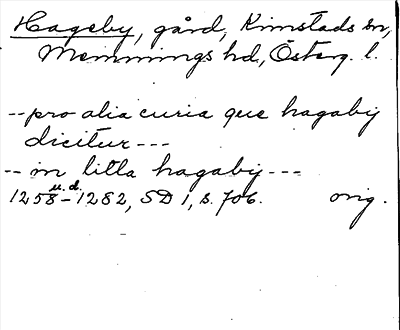 Hageby, gård, Kimstads sn,
Memmings hd, Österg. l.
-- pro alia curia que hagabij
dicitur ---
-- in litla hagabij ---
u.d.
1258-1282, SD 1, s. 706. orig.